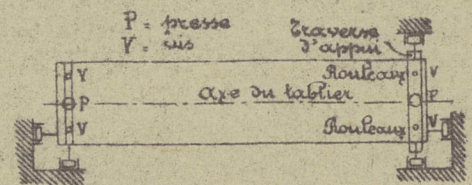 P = presse
V = vis
Traverse
d'appui
V Rouleaux V
P Axe du tablier P
V Rouleaux V